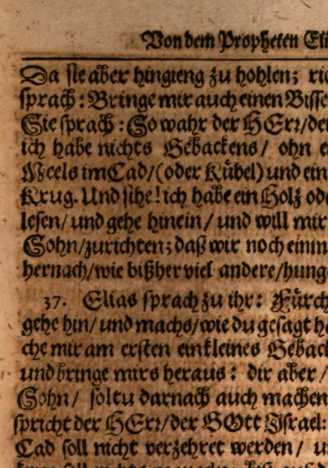 Von dem Propheten Eli
Da sie aber hingieng zu hohlen; rie
sprach: Bringe mir auch einen Bisse
Sie sprach: So wahr der HErr/de
ich habe nichts Gebackens/ ohn e
Meels im Cad/(oder Kübel) und ein
Krug. Und sihe! ich habe ein Holz ode
lesen/ und gehe hinein/ und will mir
Sohn/zurichten; daß wir noch einm
hernach/wie bißher viel andere/hung
37. Elias sprach zu ihr: Fürch
gehe hin/ und machs/wie du gesagt ha
che mir am ersten ein kleines Geback
und bringe mirs heraus: dir aber/
Sohn/ soltu darnach auch machen
spricht der HErr/der GOtt Israel:
Cad soll nicht verzehret werden/ u